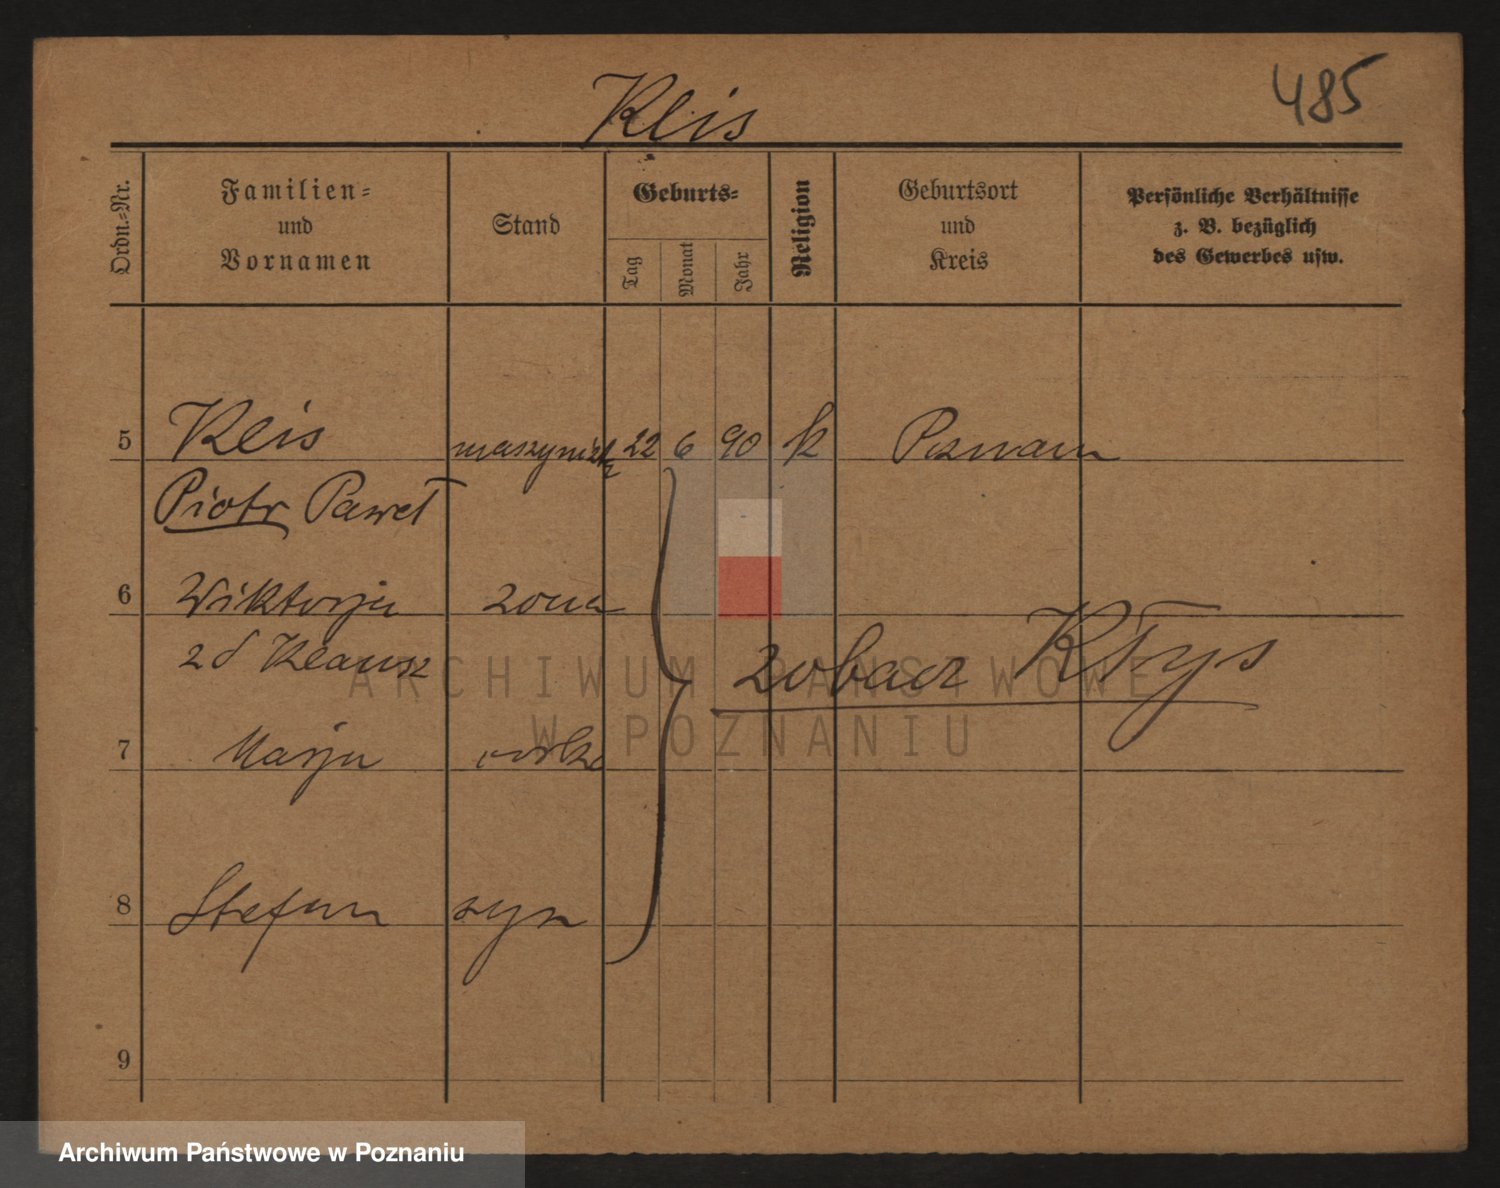 485
Kleis
Ordn.=Nr.
Familien=
und
Vornamen
Stand
Geburts=
Tag
Monat
Jahr
Religion
Geburtsort
und
Kreis
Persönliche Verhältnisse
z. B. bezüglich
des Gewerbes usw.
5 Kleis maszynista 22 6 90 k Poznań
Piotr Paweł
6 Wiktorja żona
zd Klausz
zobacz Kłys
7 Marja córka
8 Stefan syn
9
ARCHIWUM PAŃSTWOWE
W POZNANIU
Archiwum Państwowe w Poznaniu